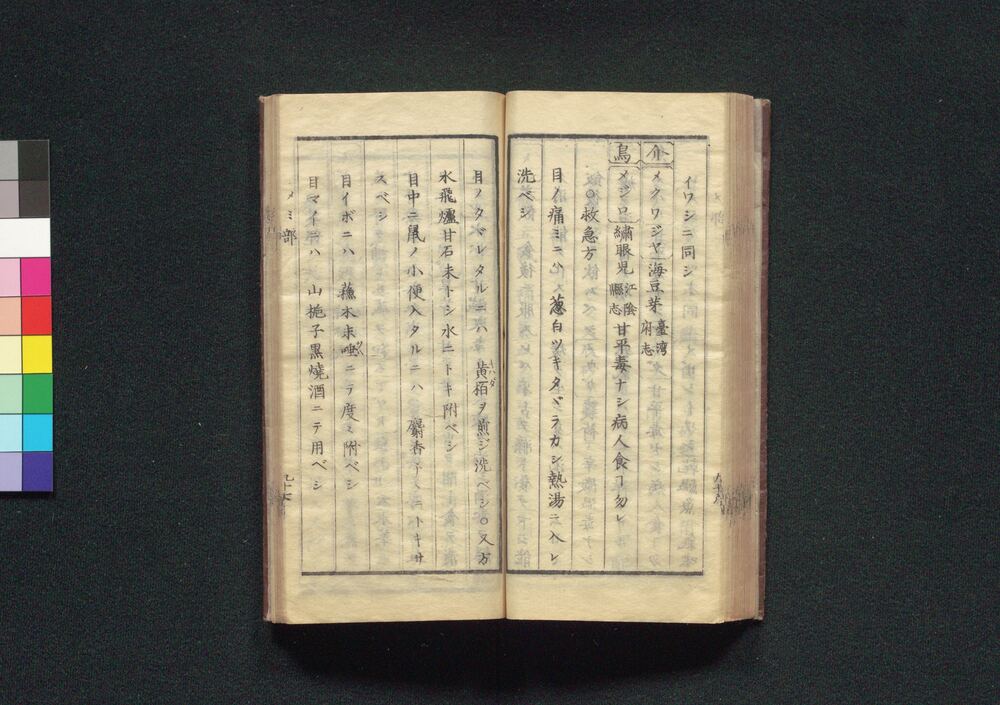 イワシニ同シ
介 メクワジヤ 海豆芽 臺湾府志
鳥 メジロ 繍眼児 江陰縣志 甘平毒ナシ病人食ヿ勿レ
○救急方
目ノ痛ミニハ 葱白ツキタヾラカシ熱湯ニ入レ
洗ベシ
目ノタヾレタルニハ 黄栢ヲ煎ジ洗ベシ○又方
水飛爐甘石末トシ水ニトキ附ベシ
目中ニ鼠ノ小便入タルニハ 麝香 ニトキサ
スベシ
目イボニハ 蘓木末唾ニテ度々附ベシ
目マイニハ 山梔子黒燒酒ニテ用ベシ
メミ部
九十七